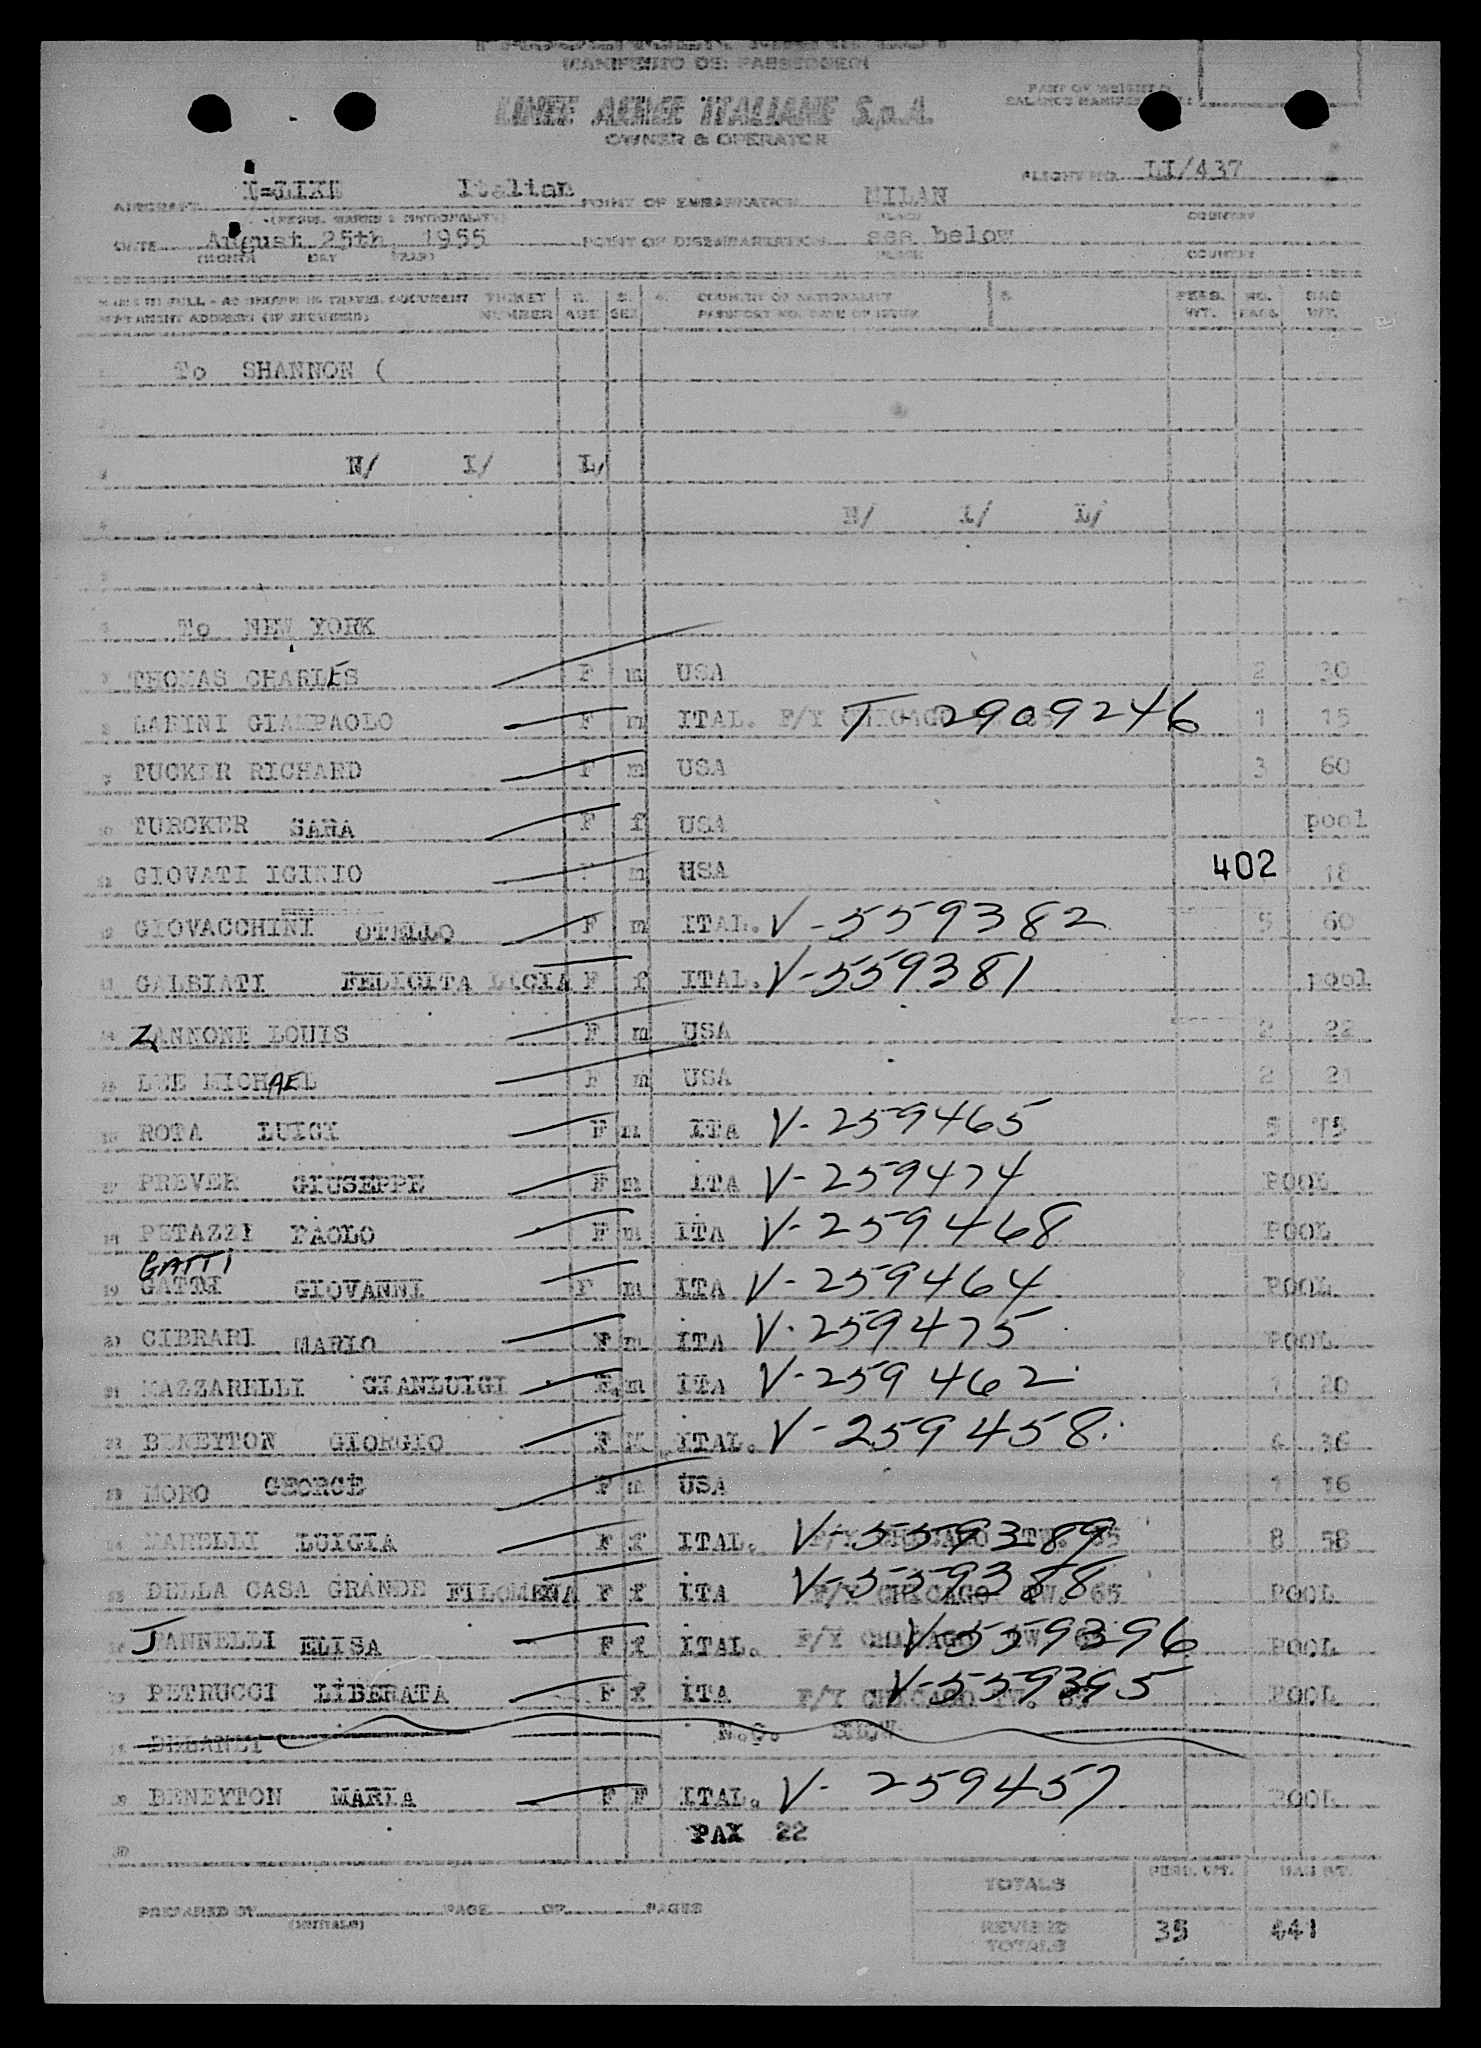 (MANIFESTO DEI PASSEGGERI)
LINEE AEREE ITALIANE S.p.A.
OWNER & OPERATOR
PART OF WEIGHT &
BALANCE MANIFEST
AIRCRAFT Italian POINT OF EMBARKATION MILAN FLIGHT NO. LI/437
(REGIS. MARKS & NATIONALITY) PLACE COUNTRY
DATE August 25th, 1955 POINT OF DISEMBARKATION see below
(MONTH DAY YEAR) PLACE COUNTRY
NAME IN FULL - AS SHOWN IN TRAVEL DOCUMENT TICKET COUNTRY OF NATIONALITY PERS. NO. BAG
PERMANENT ADDRESS (IF REQUIRED) NUMBER AGE SEX PASSPORT NO. DATE OF ISSUE WT. PACS. WT.
To SHANNON (
N/ I/ L/
N/ I/ L/
To NEW YORK
THOMAS CHARLES F m USA 2 30
LABINI GIAMPAOLO F m ITAL. F/Y CHICAGO T-2909246 1 15
TUCKER RICHARD F m USA 3 60
TURCKER SARA F f USA pool
GIOVATI IGINIO F m USA 402 18
GIOVACCHINI OTELLO F m ITAL. V-559382 5 60
GALBIATI FELICITA LUCIA F f ITAL. V-559381 pool
ZANNONE LOUIS F m USA 2 22
LEE MICHAEL F m USA 2 21
ROTA LUIGI F m ITA V-259465 5 75
PREVER GIUSEPPE F m ITA V-259474 POOL
PETAZZI PAOLO F m ITA V-259468 POOL
GATTI
GATTI GIOVANNI F m ITA V-259464 POOL
CIBRARI MARIO F m ITA V-259475 POOL
MAZZARELLI GIANLUIGI F m ITA V-259462 1 20
BENEYTON GIORGIO F M ITAL. V-259458 4 36
MORO GEORGE F m USA 1 16
MARELLI LUIGIA F f ITAL. F/Y CHICAGO TW. 65 V-559389 8 58
DELLA CASA GRANDE FILOMENA F f ITA F/Y CHICAGO TW. 65 V-559388 POOL
JANNELLI ELISA F f ITAL. F/Y CHICAGO TW. V-559396 POOL
PETRUCCI LIBERATA F f ITA F/Y CHICAGO TW. V-559395 POOL
N.O. SHOW
BENEYTON MARIA F F ITAL. V-259457 POOL
PAX 22
TOTALS PERS. WT. BAG WT.
PREPARED BY PAGE OF PAGES
(INITIALS)
REVISED TOTALS 35 441